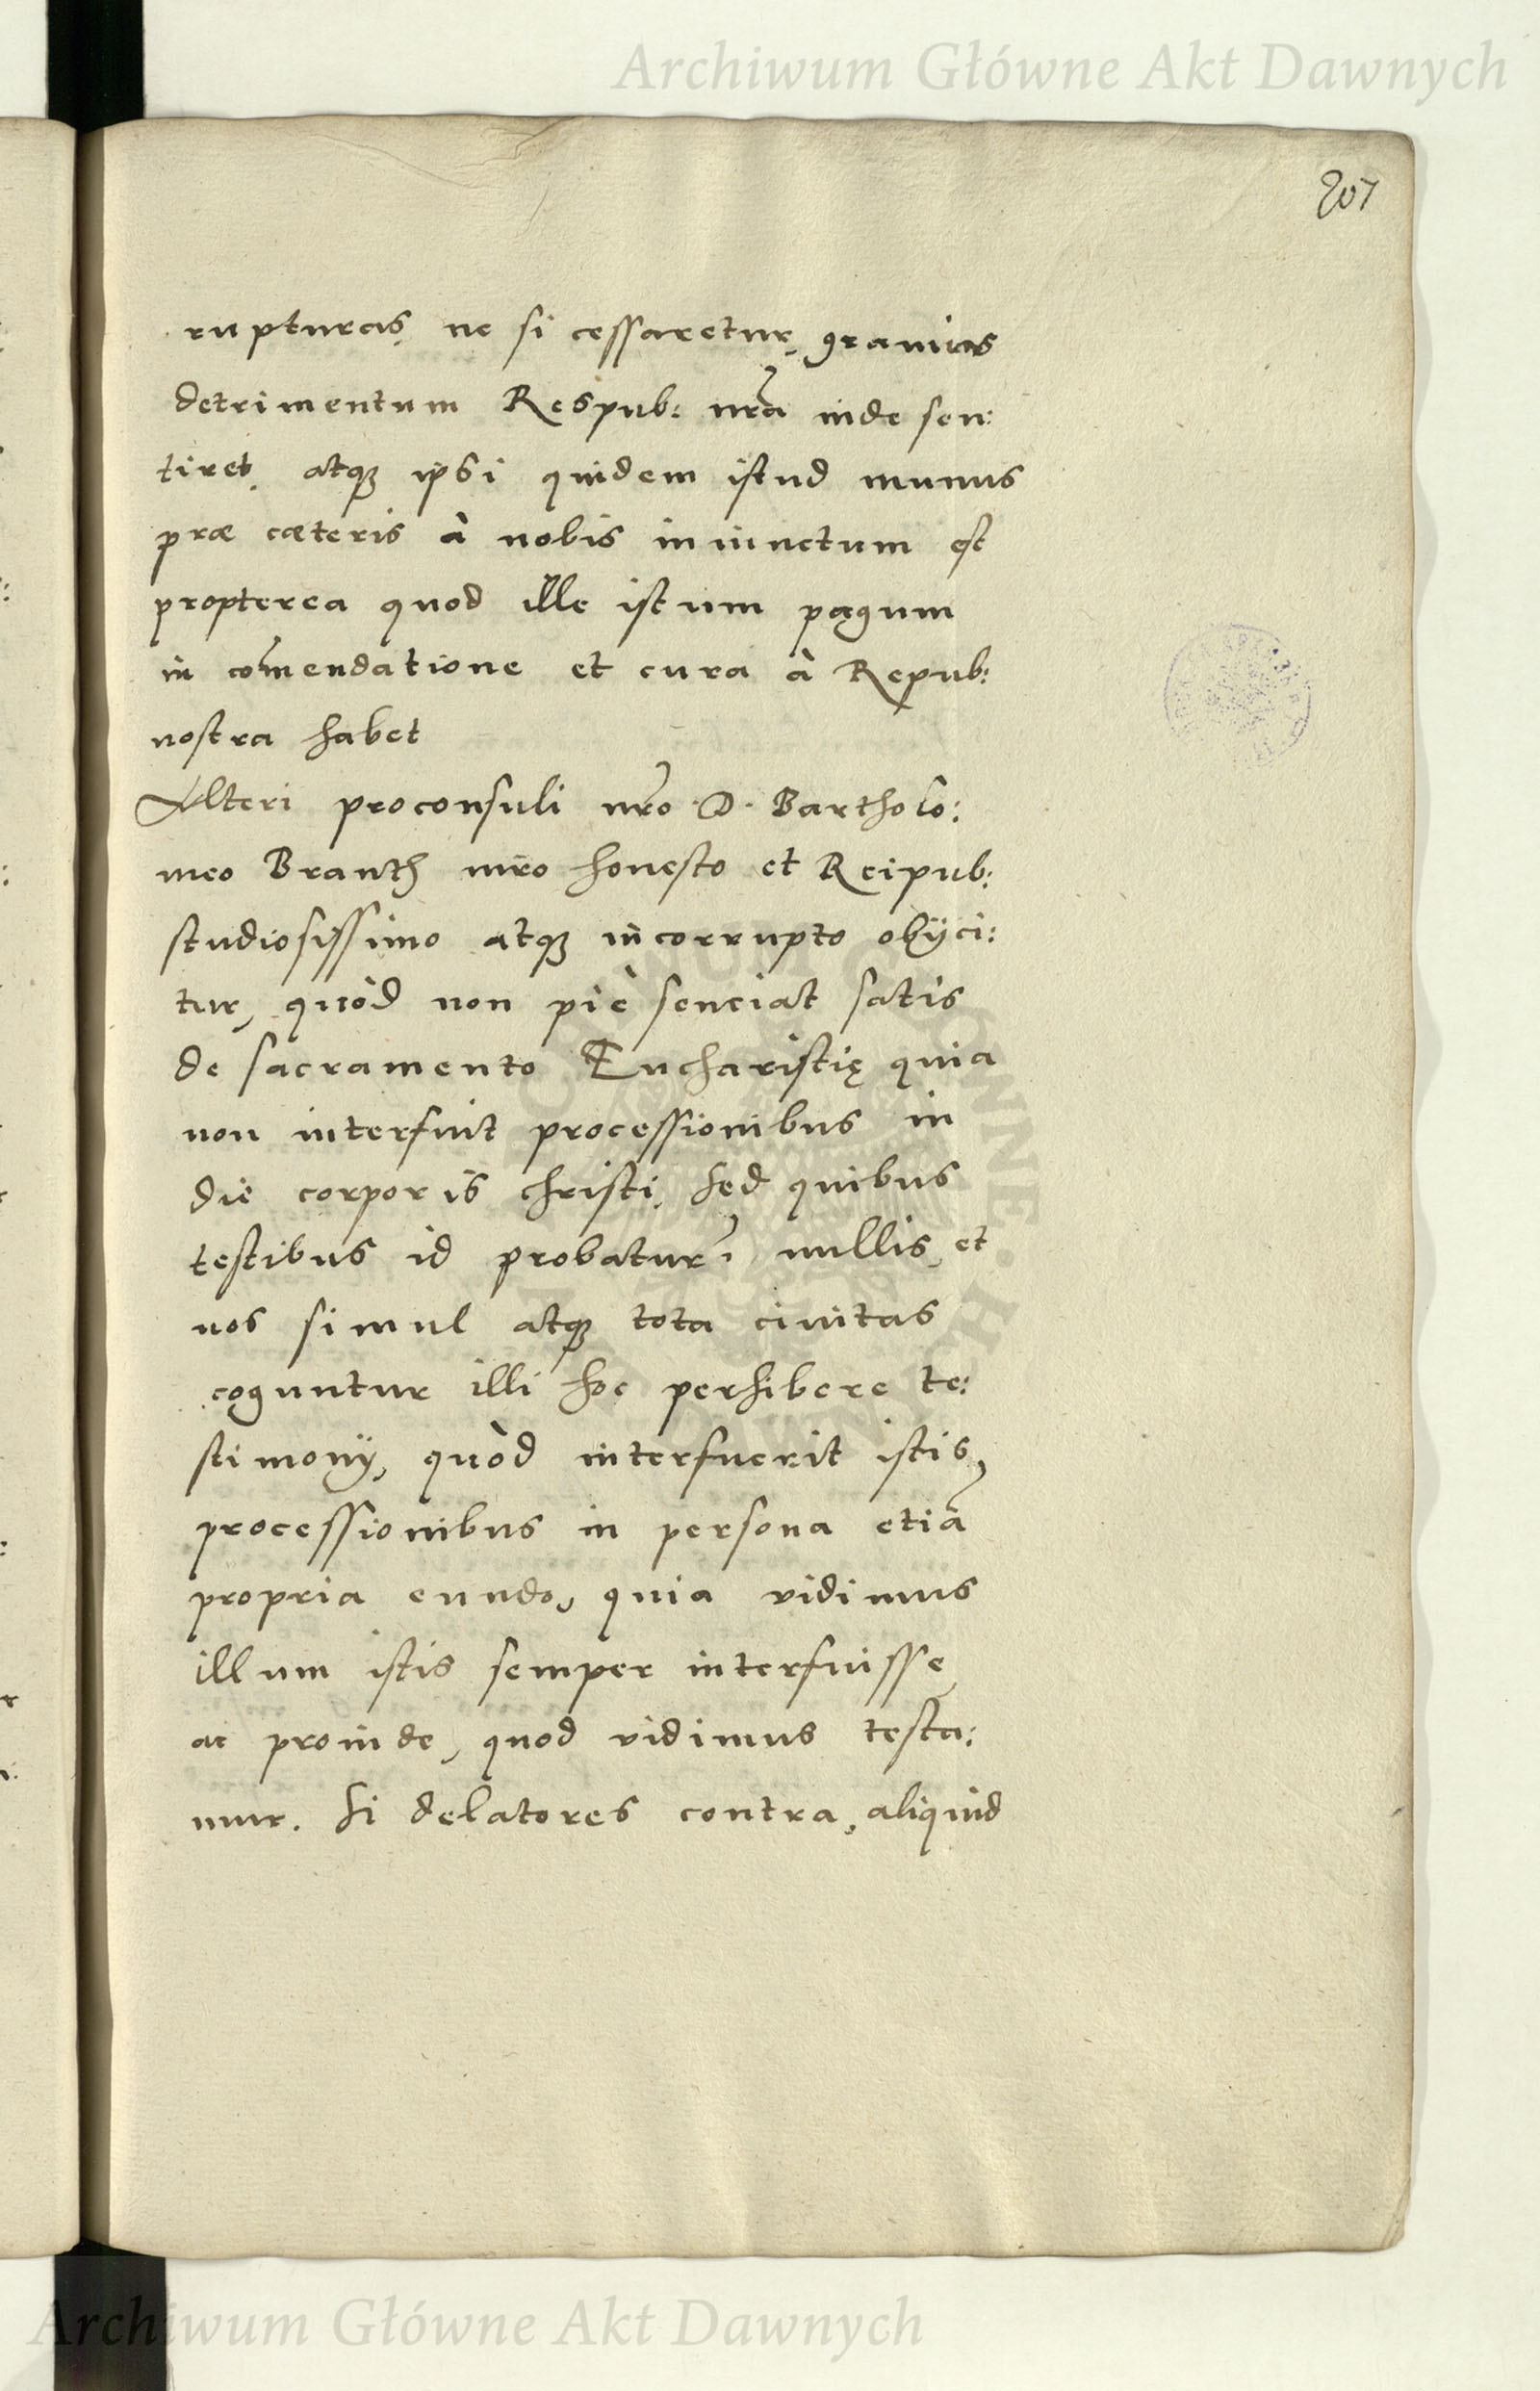 Archiwum Główne Akt Dawnych
207
rupturas, ne si cessaretur, grauius
detrimentum Respub: nr̃a inde sen:
tiret, atq₃ ipsi quidem istud munus
præ cæteris à nobis iniunctum est
propterea quod ille istum pagum
in com̃endatione et cura à Repub:
nostra habet
Alteri proconsuli nr̃o D. Bartholo:
meo Branth uiro honesto et Reipub:
studiosissimo atq₃ incorrupto obijci:
tur, quòd non piè senciat satis
de sacramento Eucharistię quia
non interfuit processionibus in
die corporis christi, Sed quibus
testibus id probatur? nullis, et
nos simul atq₃ tota ciuitas
coguntur illi hoc perhibere te:
stimonij, quòd interfuerit istis,
processionibus in persona etiã
propria eundo, quia vidimus
illum istis semper interfuisse,
ac proinde, quod vidimus testa:
mur. Si delatores contra, aliquid
Archiwum Główne Akt Dawnych